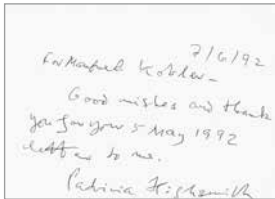 7/6/92
For Manfred Kobler –
Good wishes and thank
you for your 5 May 1992
letter to me.
Patricia Highsmith